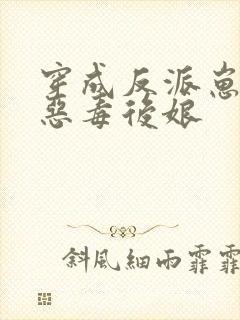 穿成反派崽
惡毒後娘
斜風細雨霏霏